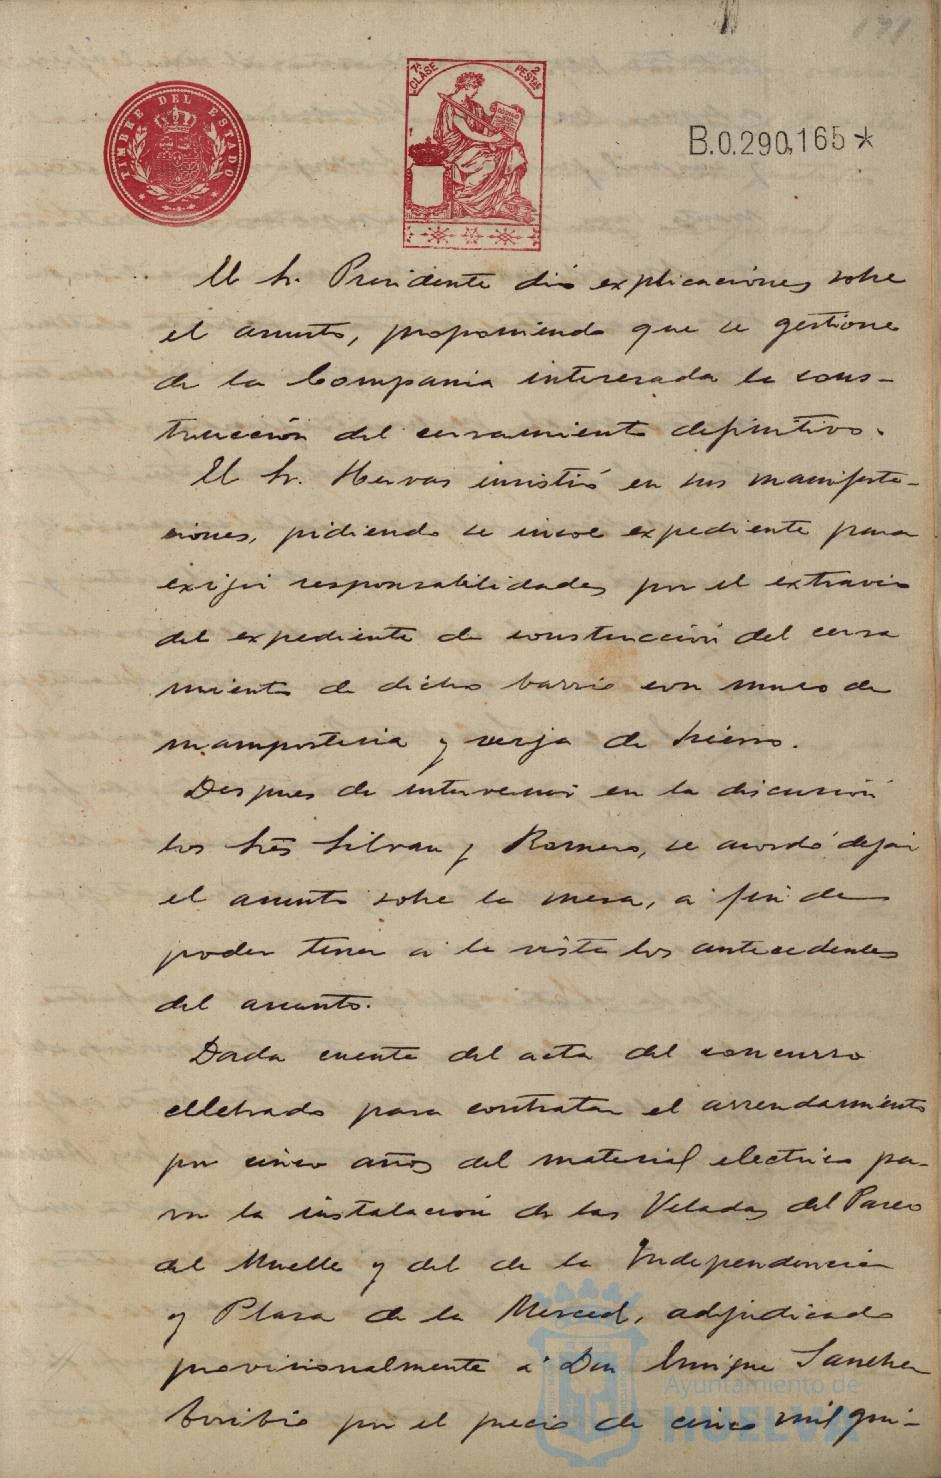 191
TIMBRE DEL ESTADO
7ª CLASE 2 PESTAS
B.0.290,165*
El Sr. Presidente dió explicaciones sobre
el asunto, proponiendo que se gestione
de la Compania interesada la cons-
trucción del cerramiento definitivo.
El Sr. Hervas insistió en sus manifesta-
ciones, pidiendo se incoe expediente para
exijir responsabilidades por el extravio
del expediente de construcción del cerra
miento de dicho barrio con muro de
mamposteria y verja de hierro.
Despues de intervenir en la discusión
los Sres Silvan y Romero, se acordó dejar
el asunto sobre la mesa, a fin de
poder tener a la vista los antecedentes
del asunto.
Dada cuenta del acta del concurso
celebrado para contratar el arrendamiento
por cinco años del material electrico pa-
ra la instalación de las Veladas del Paseo
del Muelle y del de la Independencia
y Plaza de la Merced, adjudicado
provisionalmente a Don Enrique Sanchez
por el precio de cinco mil qui-
Ayuntamiento de
HUELVA